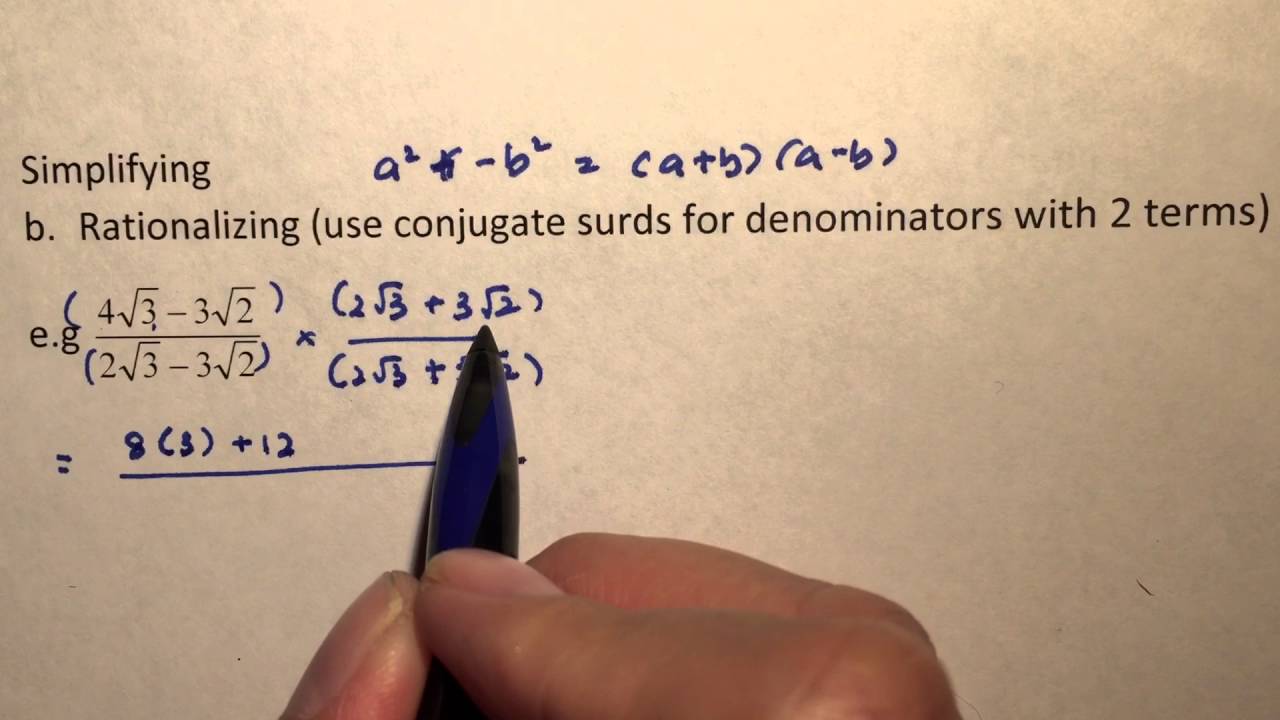 Simplifying a² + -b² = (a+b)(a-b)
b. Rationalizing (use conjugate surds for denominators with 2 terms)
(4√3 – 3√2) (2√3 + 3√2)
e.g ×
(2√3 – 3√2) (2√3 + 2)
= 8(3) + 12